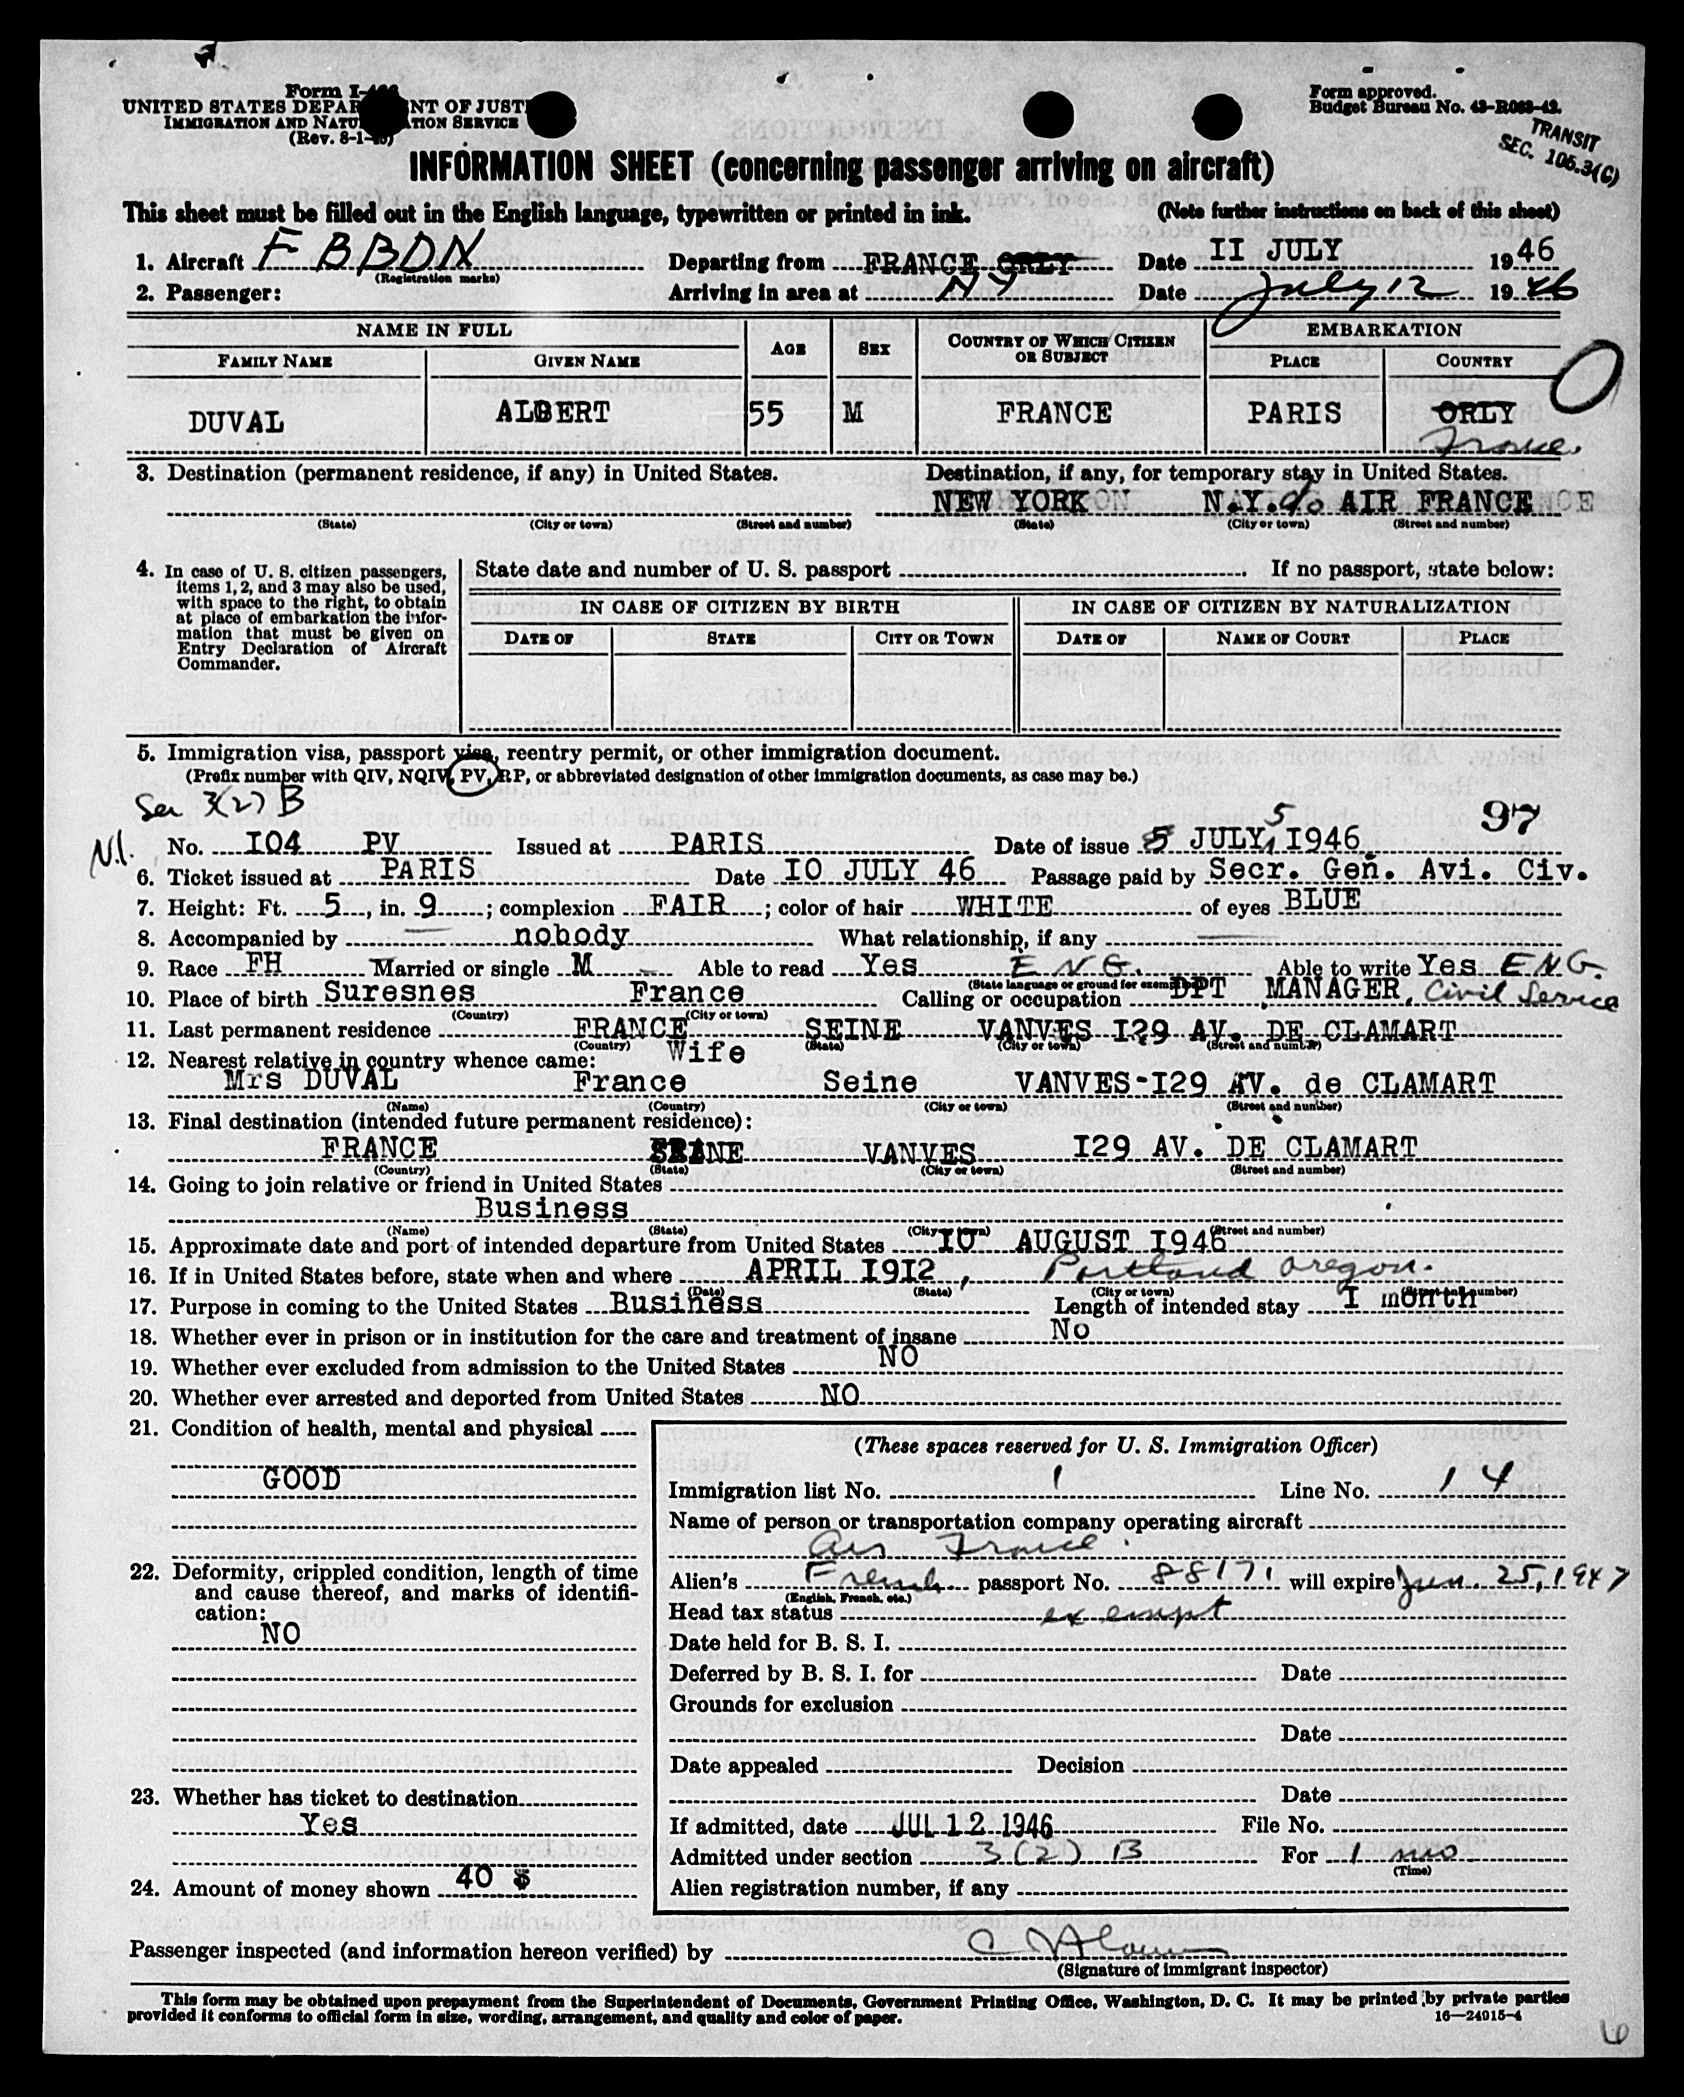 Form I-466
UNITED STATES DEPARTMENT OF JUSTICE
IMMIGRATION AND NATURALIZATION SERVICE
(Rev. 8-1-45)
Form approved.
Budget Bureau No. 43-R063-42.
TRANSIT
SEC. 105.3(C)
INFORMATION SHEET (concerning passenger arriving on aircraft)
This sheet must be filled out in the English language, typewritten or printed in ink. (Note further instructions on back of this sheet)
1. Aircraft F BBDN Departing from FRANCE ORLY Date II JULY 1946
(Registration marks)
2. Passenger: Arriving in area at NY Date July 12 1946
NAME IN FULL AGE SEX COUNTRY OF WHICH CITIZEN OR SUBJECT EMBARKATION
FAMILY NAME GIVEN NAME PLACE COUNTRY
DUVAL ALBERT 55 M FRANCE PARIS ORLY
France.
3. Destination (permanent residence, if any) in United States. Destination, if any, for temporary stay in United States.
NEW YORK N.Y. c/o AIR FRANCE
(State) (City or town) (Street and number) (State) (City or town) (Street and number)
4. In case of U. S. citizen passengers, items 1, 2, and 3 may also be used, with space to the right, to obtain at place of embarkation the information that must be given on Entry Declaration of Aircraft Commander.
State date and number of U. S. passport If no passport, state below:
IN CASE OF CITIZEN BY BIRTH IN CASE OF CITIZEN BY NATURALIZATION
DATE OF STATE CITY OR TOWN DATE OF NAME OF COURT PLACE
5. Immigration visa, passport visa, reentry permit, or other immigration document.
(Prefix number with QIV, NQIV, PV, RP, or abbreviated designation of other immigration documents, as case may be.)
Sec 3(2) B
97
N.I.
No. I04 PV Issued at PARIS Date of issue 5 JULY 5 I946
6. Ticket issued at PARIS Date IO JULY 46 Passage paid by Secr. Gen. Avi. Civ.
7. Height: Ft. 5, in. 9; complexion FAIR; color of hair WHITE of eyes BLUE
8. Accompanied by nobody What relationship, if any
9. Race FH Married or single M Able to read Yes ENG. Able to write Yes ENG.
(State language or ground for exemption)
10. Place of birth Suresnes France Calling or occupation DPT MANAGER, Civil Service
(Country) (City or town)
11. Last permanent residence FRANCE SEINE VANVES I29 AV. DE CLAMART
(Country) (State) (City or town) (Street and number)
12. Nearest relative in country whence came: Wife
Mrs DUVAL France Seine VANVES-I29 AV. de CLAMART
(Name) (Country) (City or town) (Street and number)
13. Final destination (intended future permanent residence):
FRANCE SEINE VANVES I29 AV. DE CLAMART
(Country) (State) (City or town) (Street and number)
14. Going to join relative or friend in United States
Business
(Name) (State) (City or town) (Street and number)
15. Approximate date and port of intended departure from United States IO AUGUST I946
16. If in United States before, state when and where APRIL I9I2, Portland Oregon.
(Date) (State) (City or town) (Street and number)
17. Purpose in coming to the United States Business Length of intended stay I month
18. Whether ever in prison or in institution for the care and treatment of insane No
19. Whether ever excluded from admission to the United States NO
20. Whether ever arrested and deported from United States NO
21. Condition of health, mental and physical
GOOD
22. Deformity, crippled condition, length of time and cause thereof, and marks of identification:
NO
23. Whether has ticket to destination
Yes
24. Amount of money shown 40 $
(These spaces reserved for U. S. Immigration Officer)
Immigration list No. 1 Line No. 14
Name of person or transportation company operating aircraft
Air France.
Alien's French passport No. 88171 will expire Jun. 25, 1947
(English, French, etc.)
Head tax status exempt
Date held for B. S. I.
Deferred by B. S. I. for Date
Grounds for exclusion
Date
Date appealed Decision
Date
If admitted, date JUL 12 1946 File No.
Admitted under section 3(2) B For 1 mo
(Time)
Alien registration number, if any
Passenger inspected (and information hereon verified) by
(Signature of immigrant inspector)
This form may be obtained upon prepayment from the Superintendent of Documents, Government Printing Office, Washington, D. C. It may be printed by private parties
provided it conforms to official form in size, wording, arrangement, and quality and color of paper. 16—24915-4
6